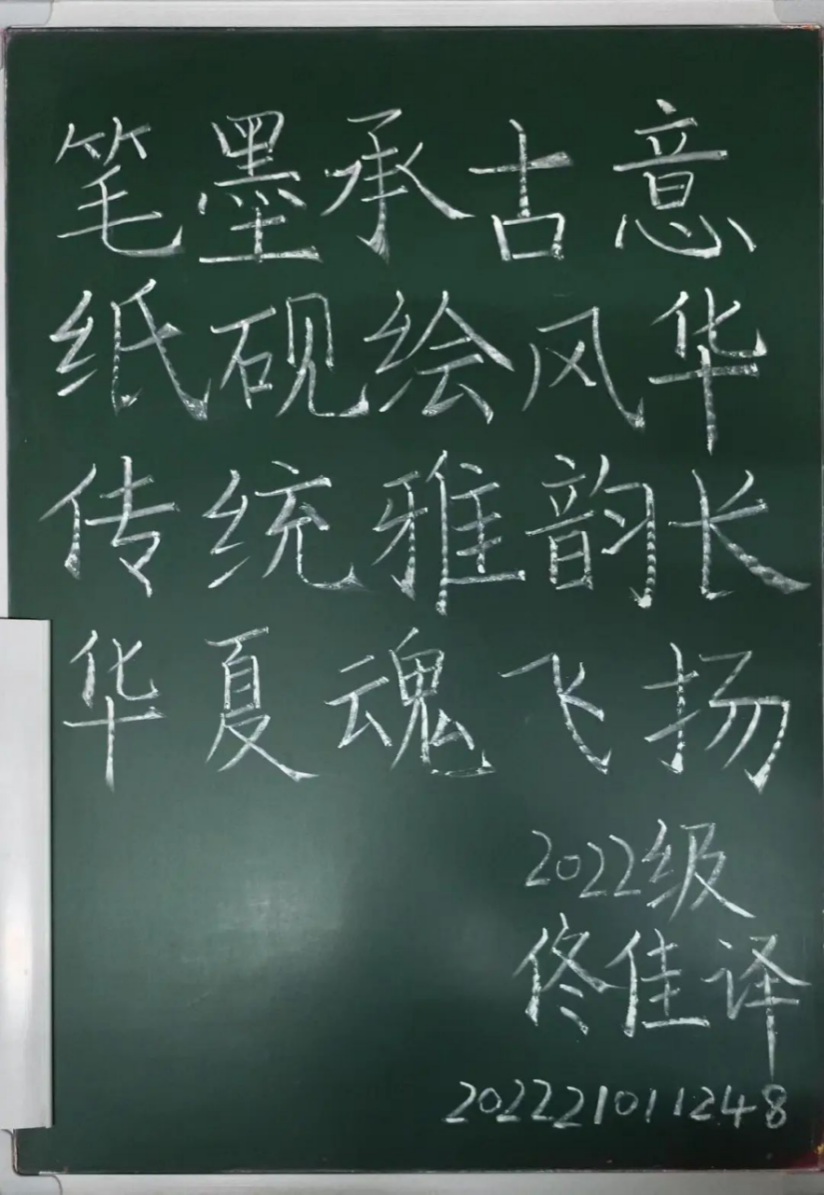 笔墨承古意
纸砚绘风华
传统雅韵长
华夏魂飞扬
2022级
佟佳译
202221011248